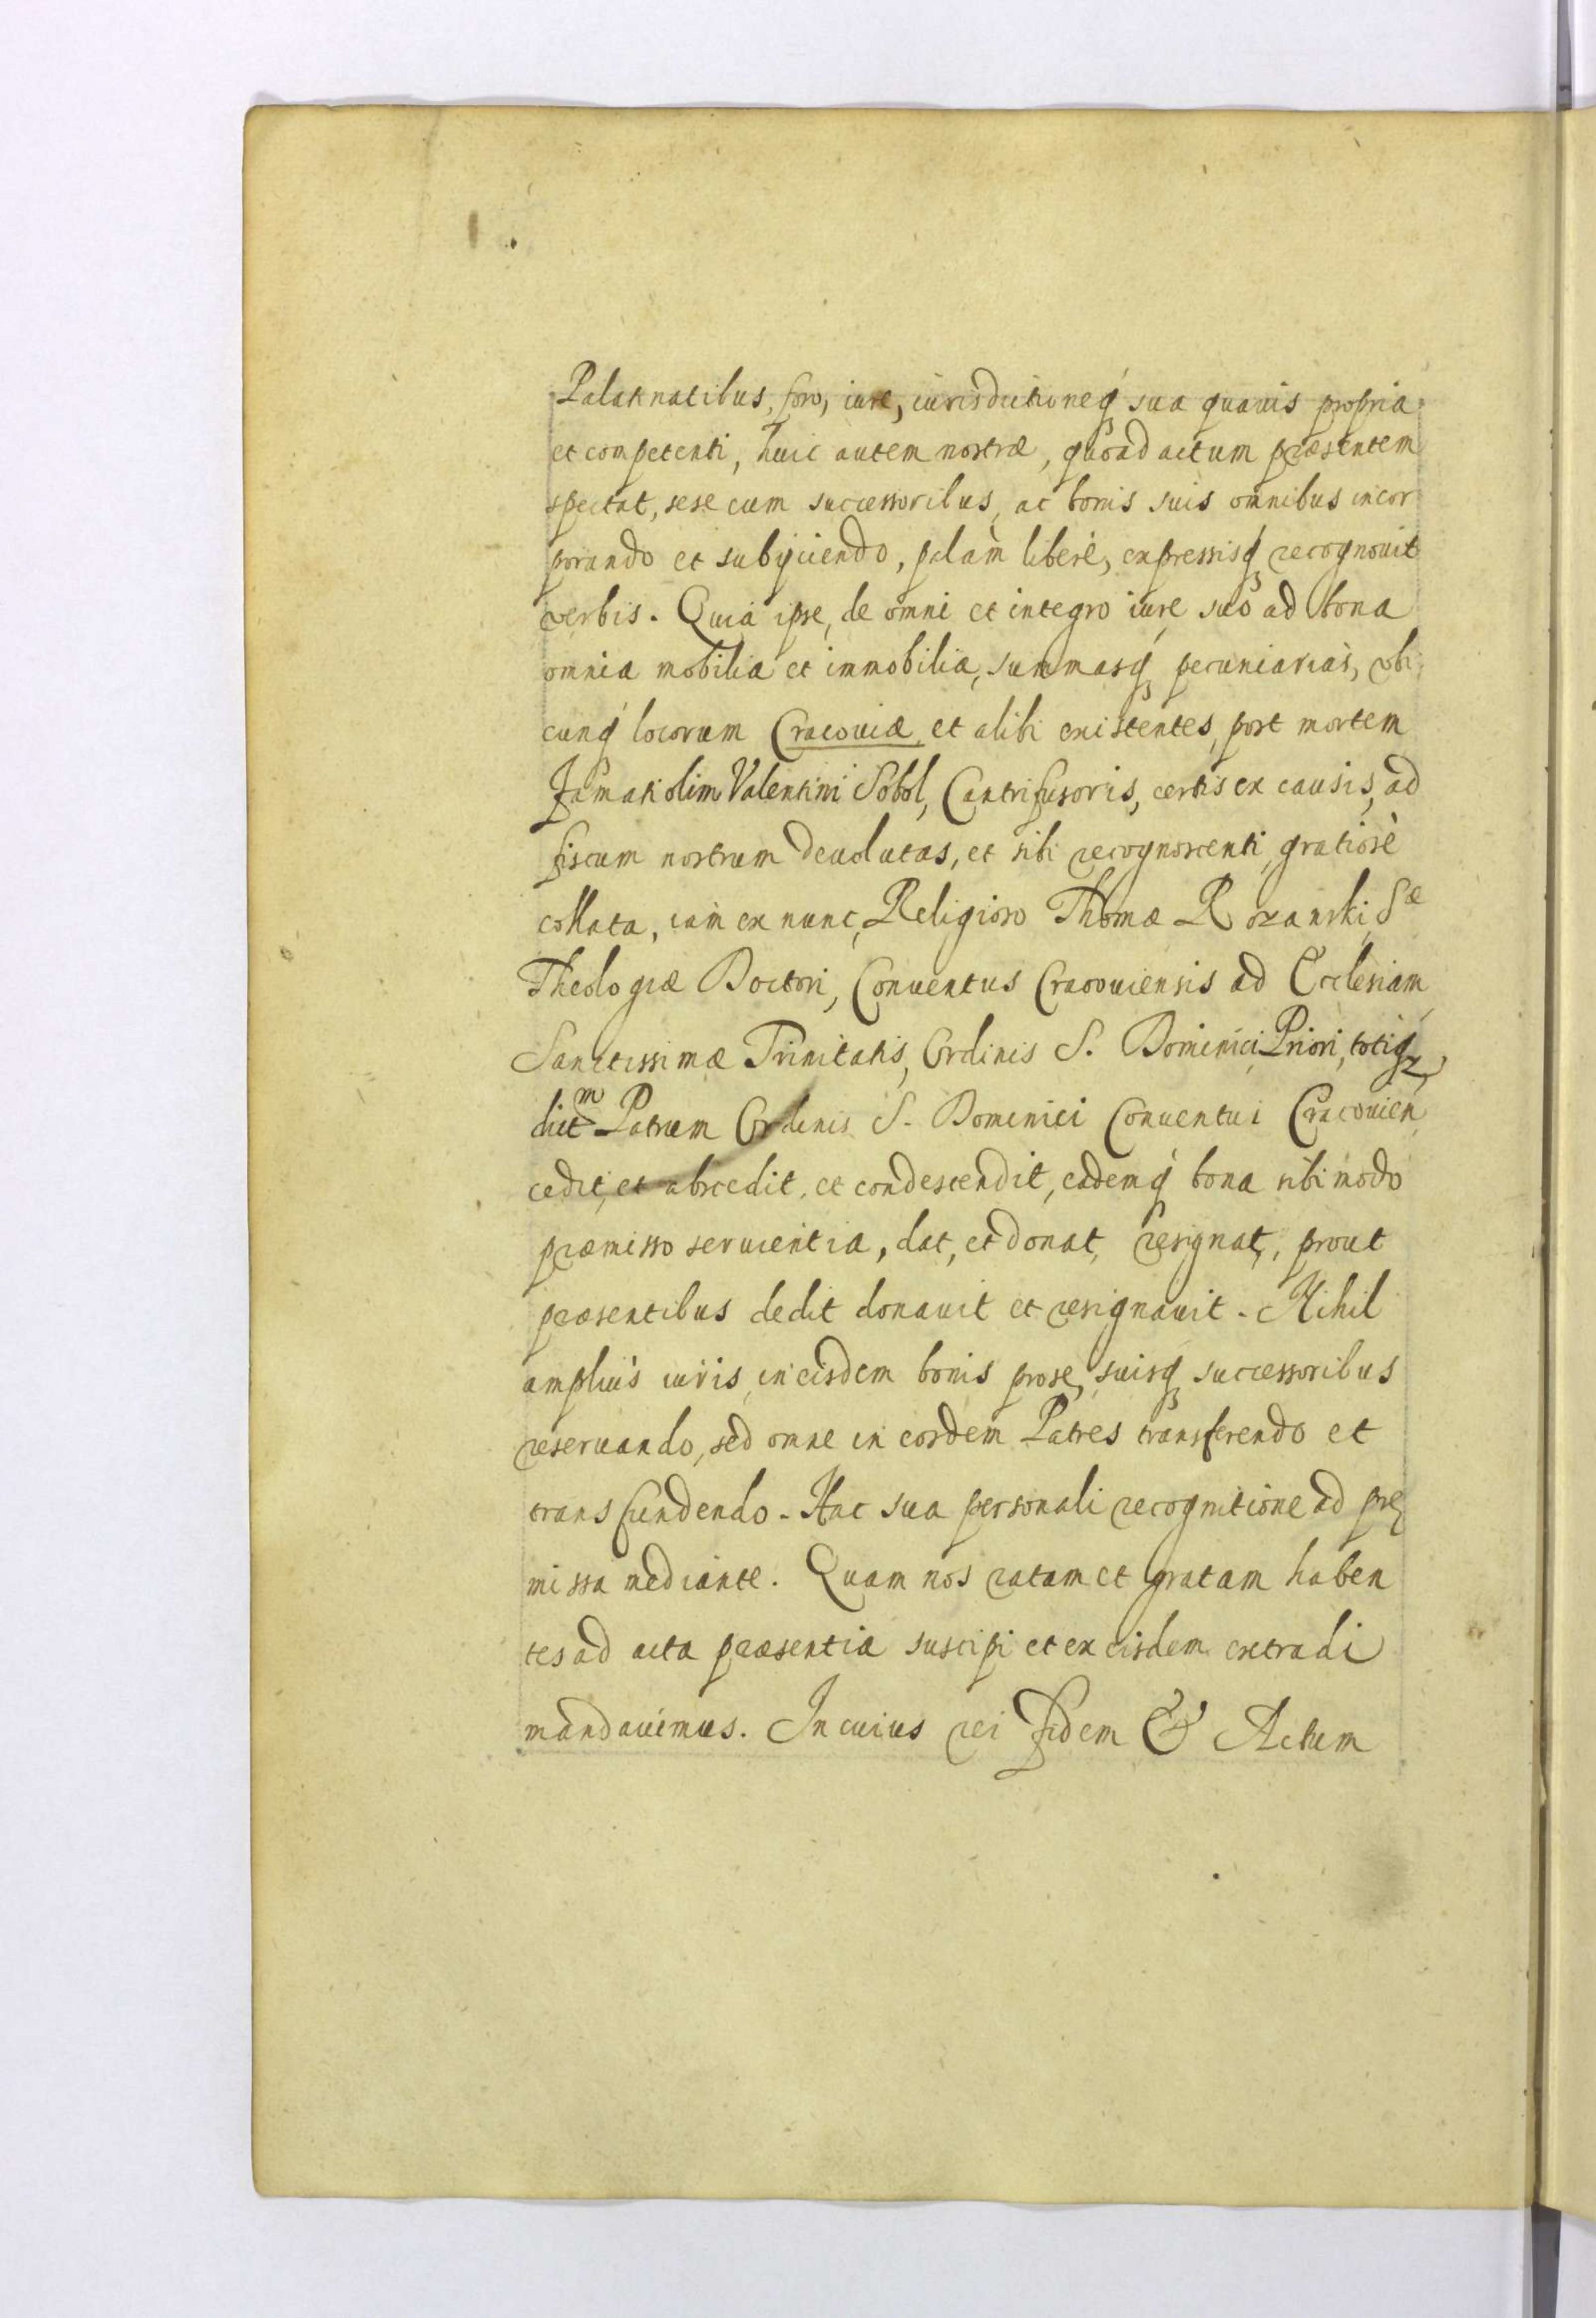 Palatinatibus, foro, iure, iurisdictioneq́ sua quauis propria
et competenti, huic autem nostræ, quòad actum præsentem
spectat, sese cum successoribus, ac bonis suis omnibus incor
porando et subijciendo, palàm liberè, expressisq́ recognouit
verbis. Quia ipse, de omni et integro iure suo ad bona
omnia mobilia et immobilia, summasq́ pecuniarias, vbi
cunq́ locorum Cracouiæ, et alibi existentes, post mortem
Famati olim Valentini Sobol, Cantrifusoris, certis ex causis, ad
fiscum nostrum deuolutas, et sibi recognoscenti, gratiosè
collata, iam ex nunc, Religioso Thomæ Rozanski, Sæ
Theologiæ Doctori, Conuentus Cracouiensis ad Ecclesiam
Sanctissimæ Trinitatis, Ordinis S. Dominici Priori, totiq
dictm Patrum Ordinis S. Dominici Conuentui Cracouien
cedit, et abscedit, et condescendit, eademq́ bona sibi modo
præmisso seruientia, dat, et donat, resignat, prout
præsentibus dedit donauit et resignauit. Nihil
ampliùs iuris, in eisdem bonis pro se, suisq́ successoribus
reseruando, sed omne in eosdem Patres transferendo et
transfundendo. Hac sua personali recognitione ad præ
missa mediante. Quam nos ratam et gratam haben
tes ad acta præsentia suscipi et ex eisdem extradi
mandauimus. In cuius rei fidem & Actum